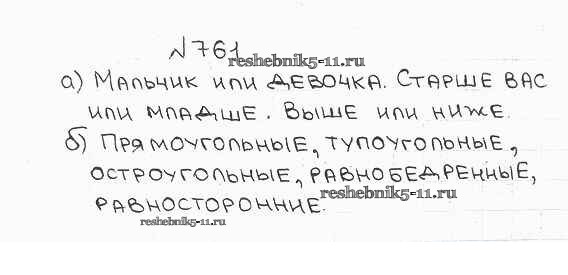 №761
reshebnik5-11.ru
а) Мальчик или девочка. Старше вас
или младше. Выше или ниже.
б) Прямоугольные, тупоугольные,
остроугольные, равнобедренные,
reshebnik5-11.ru
равносторонние.
reshebnik5-11.ru